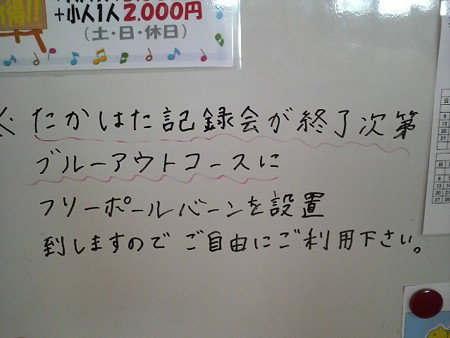 +小人1人 2,000円
(土・日・休日)
たかはた記録会が終了次第
ブルーアウトコースに
フリーポールバーンを設置
到しますので ご自由にご利用下さい。